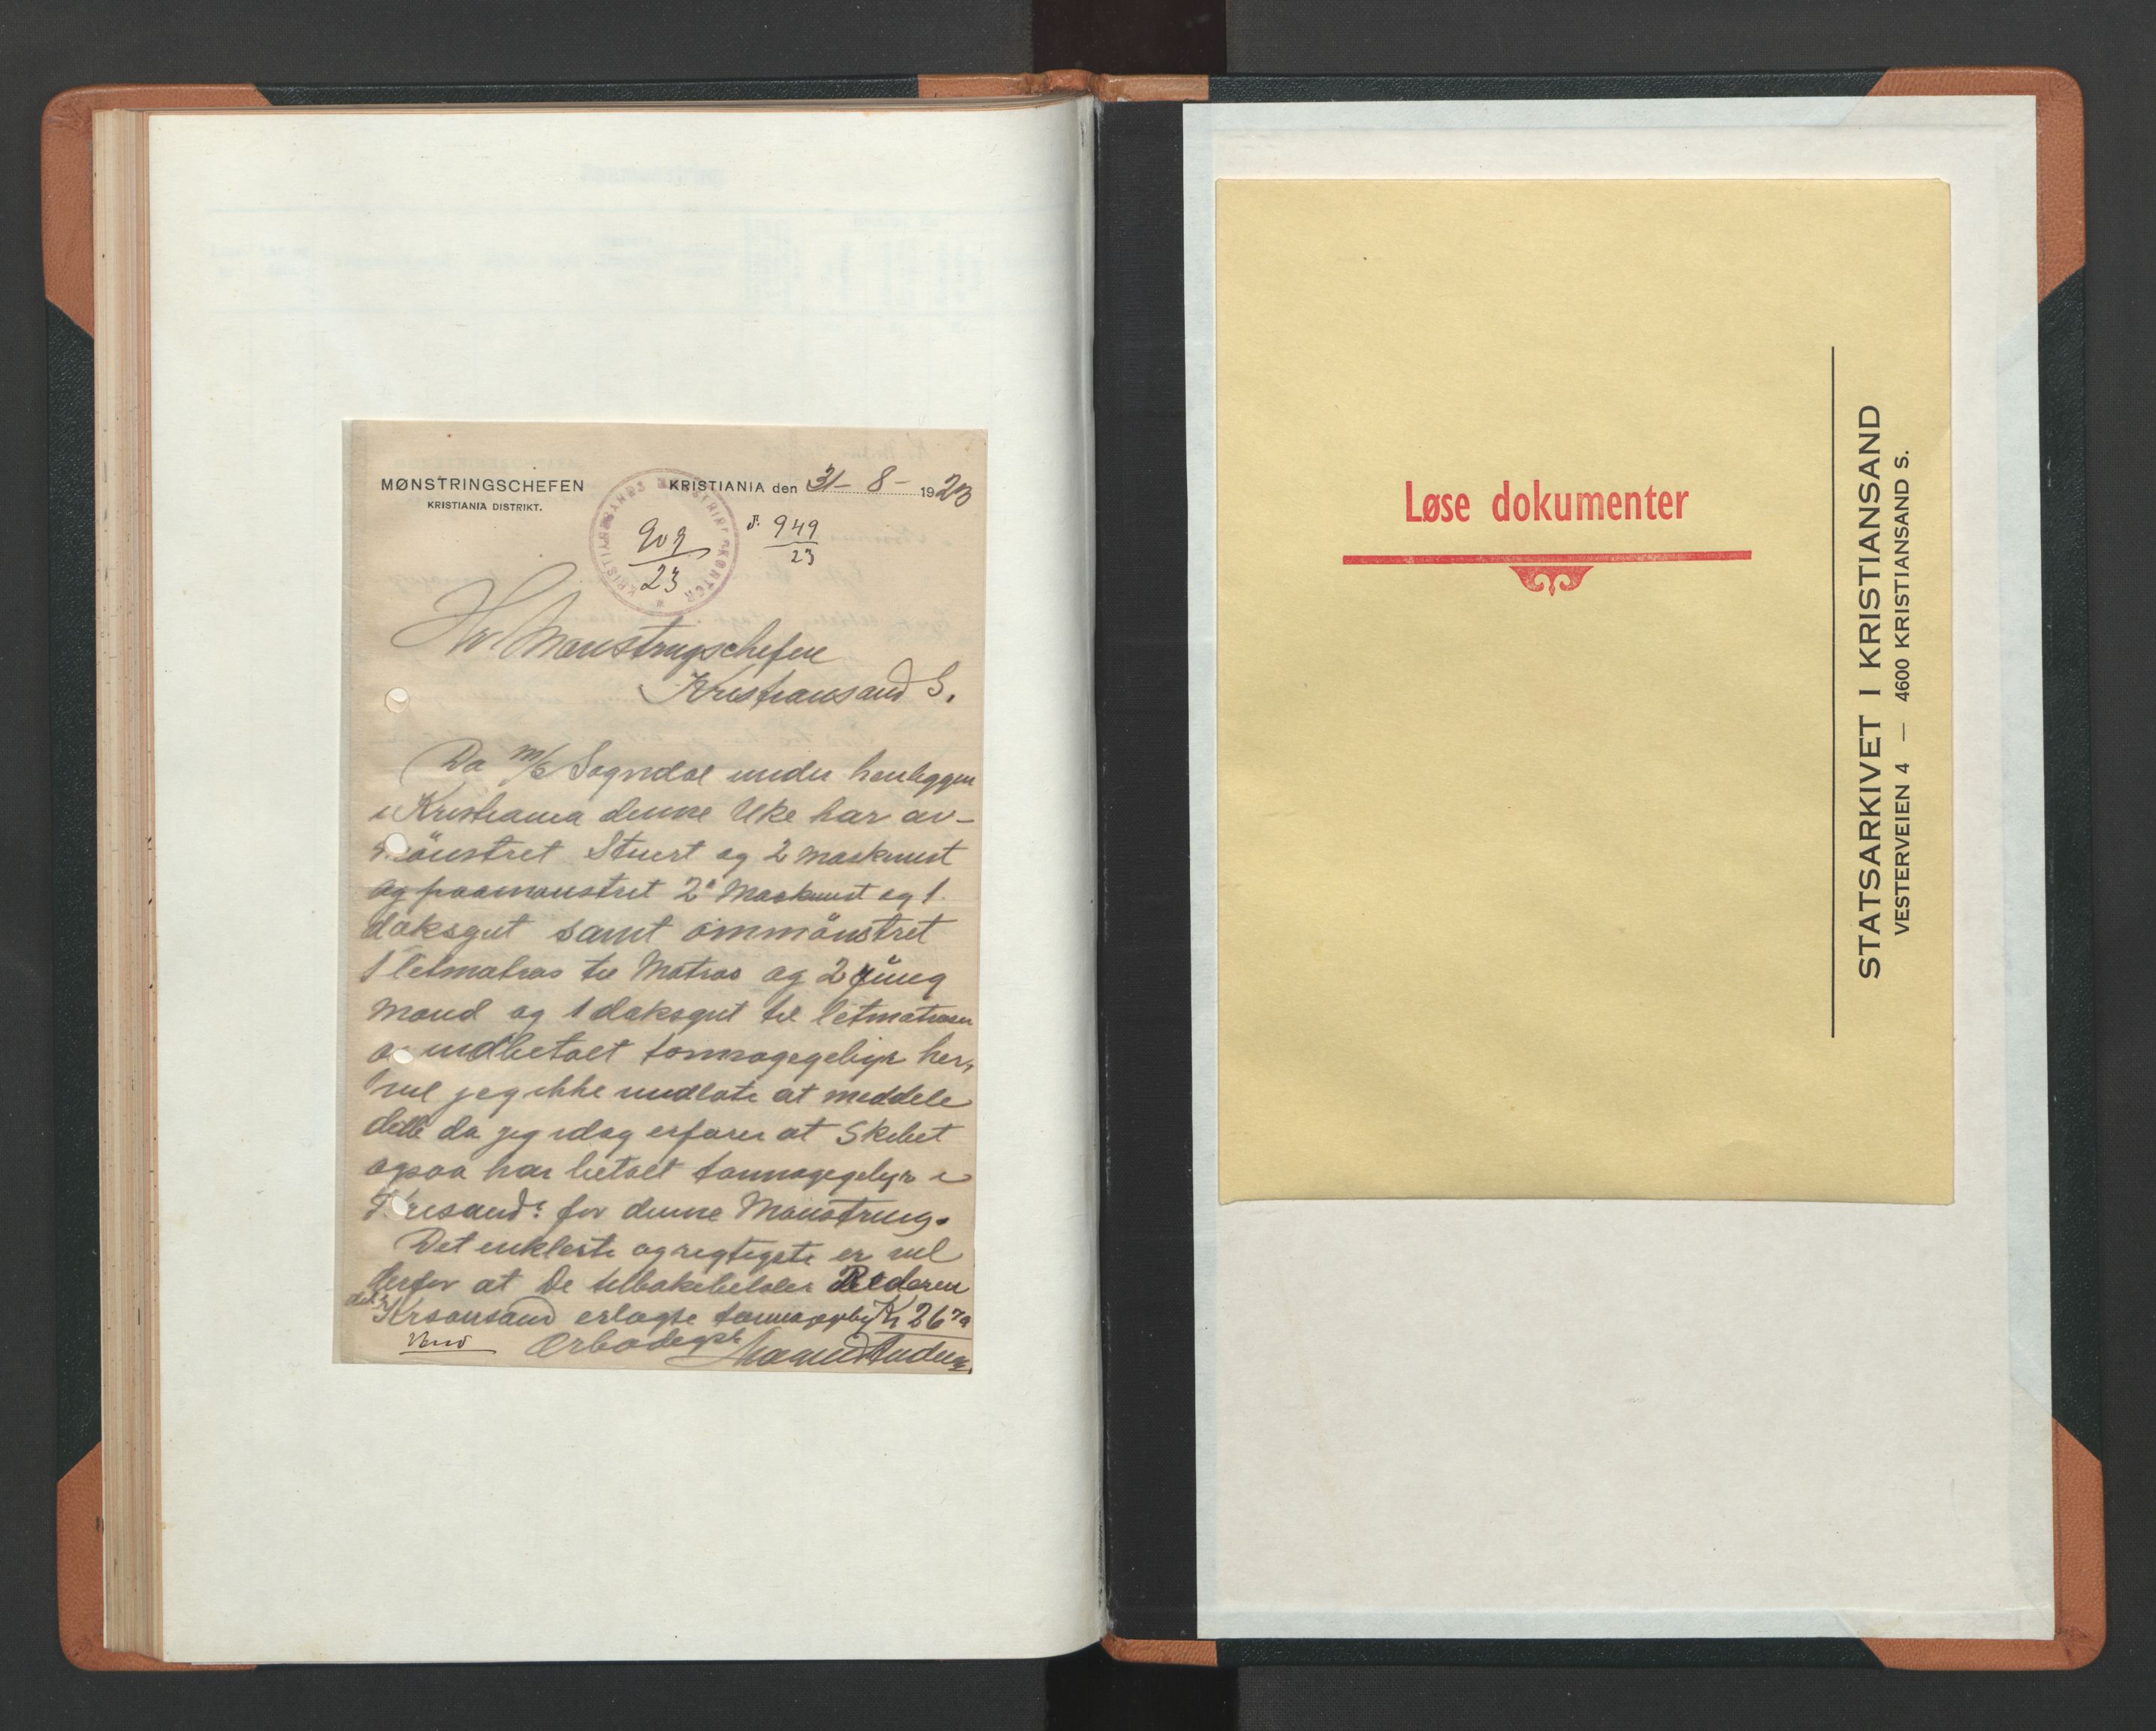 MØNSTRINGSCHEFEN
KRISTIANIA DISTRIKT.
KRISTIANIA den 31- 8- 1923
KRISTIANSANDS MØNSTRINGSKONTOR
909
23
J. 949
23
Hr Mønstringschefen
Kristiansand S.
Da M/S Sogndal under henliggen
i Kristiania denne Uke har av-
mönstret Stuert og 2 Maskinist
og paamønstret 2' Maskinist og 1
daksgut samt ommönstret
1 letmatros til Matros og 2 jung
mand og 1 daksgut til letmatroser
og indbetalt tonnagegebyr her,
vil jeg ikke undlate at meddele
dette da jeg idag erfarer at Skibet
ogsaa har betalt tonnagegebyr i
Krisand. for denne Mønstring.
Det enkleste og rigtigste er vel
derfor at De tilbakebetaler Rederen
det i Krsansand erlagte tonnagegeby Kr 26 70
Vend Ærbødigst Magnus Andersen
Løse dokumenter
STATSARKIVET I KRISTIANSAND
VESTERVEIEN 4 — 4600 KRISTIANSAND S.